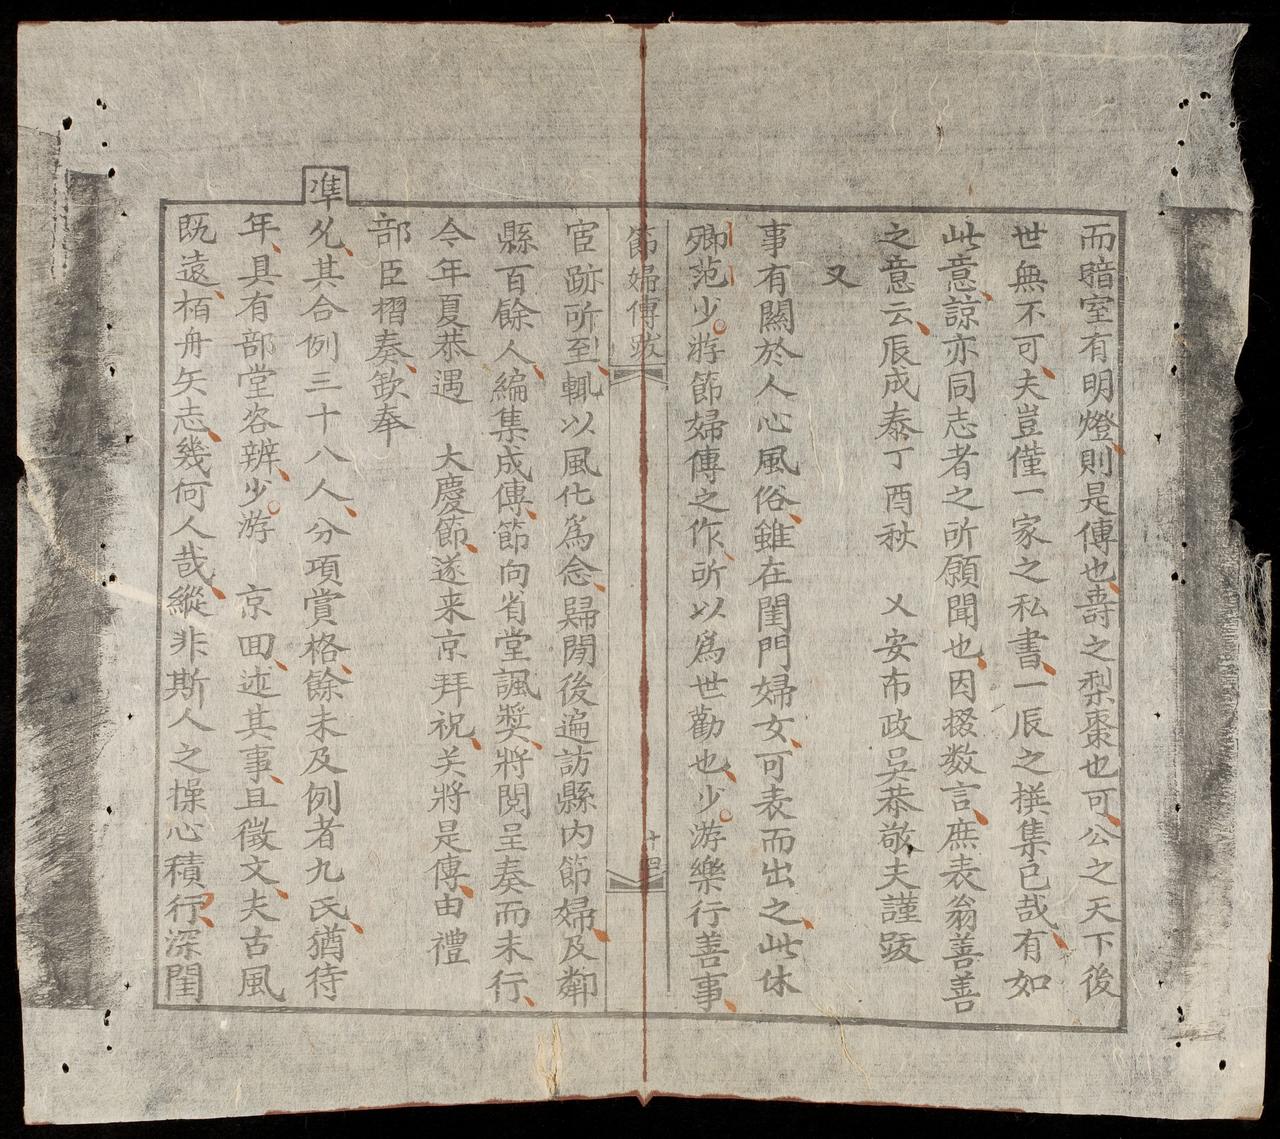 而暗室有明燈則是傳也壽之梨棗也可公之天下後
世無不可夫豈僅一家之私書一辰之撰集已哉有如
此意諒亦同志者之所願聞也因掇数言庶表翁善善
之意云辰成泰丁酉秋 乂安布政吳恭敬夫謹跋
又
事有關於人心風俗雖在閨門婦女可表而出之此休
卿范少游節婦傳之作所以爲世勸也少游樂行善事
節婦傳跋
十四
宦跡所至輒以風化爲念歸閒後遍訪縣内節婦及鄰
縣百餘人編集成傳節向省堂諷奬將閲呈奏而未行
今年夏恭遇 大慶節遂来京拜祝关將是傳由禮
部臣摺奏欽奉
準允其合例三十八人分項賞格餘未及例者九氏猶待
年具有部堂咨辨少游 京囬述其事且徵文夫古風
既遠栢舟矢志幾何人哉縱非斯人之操心積行深閨